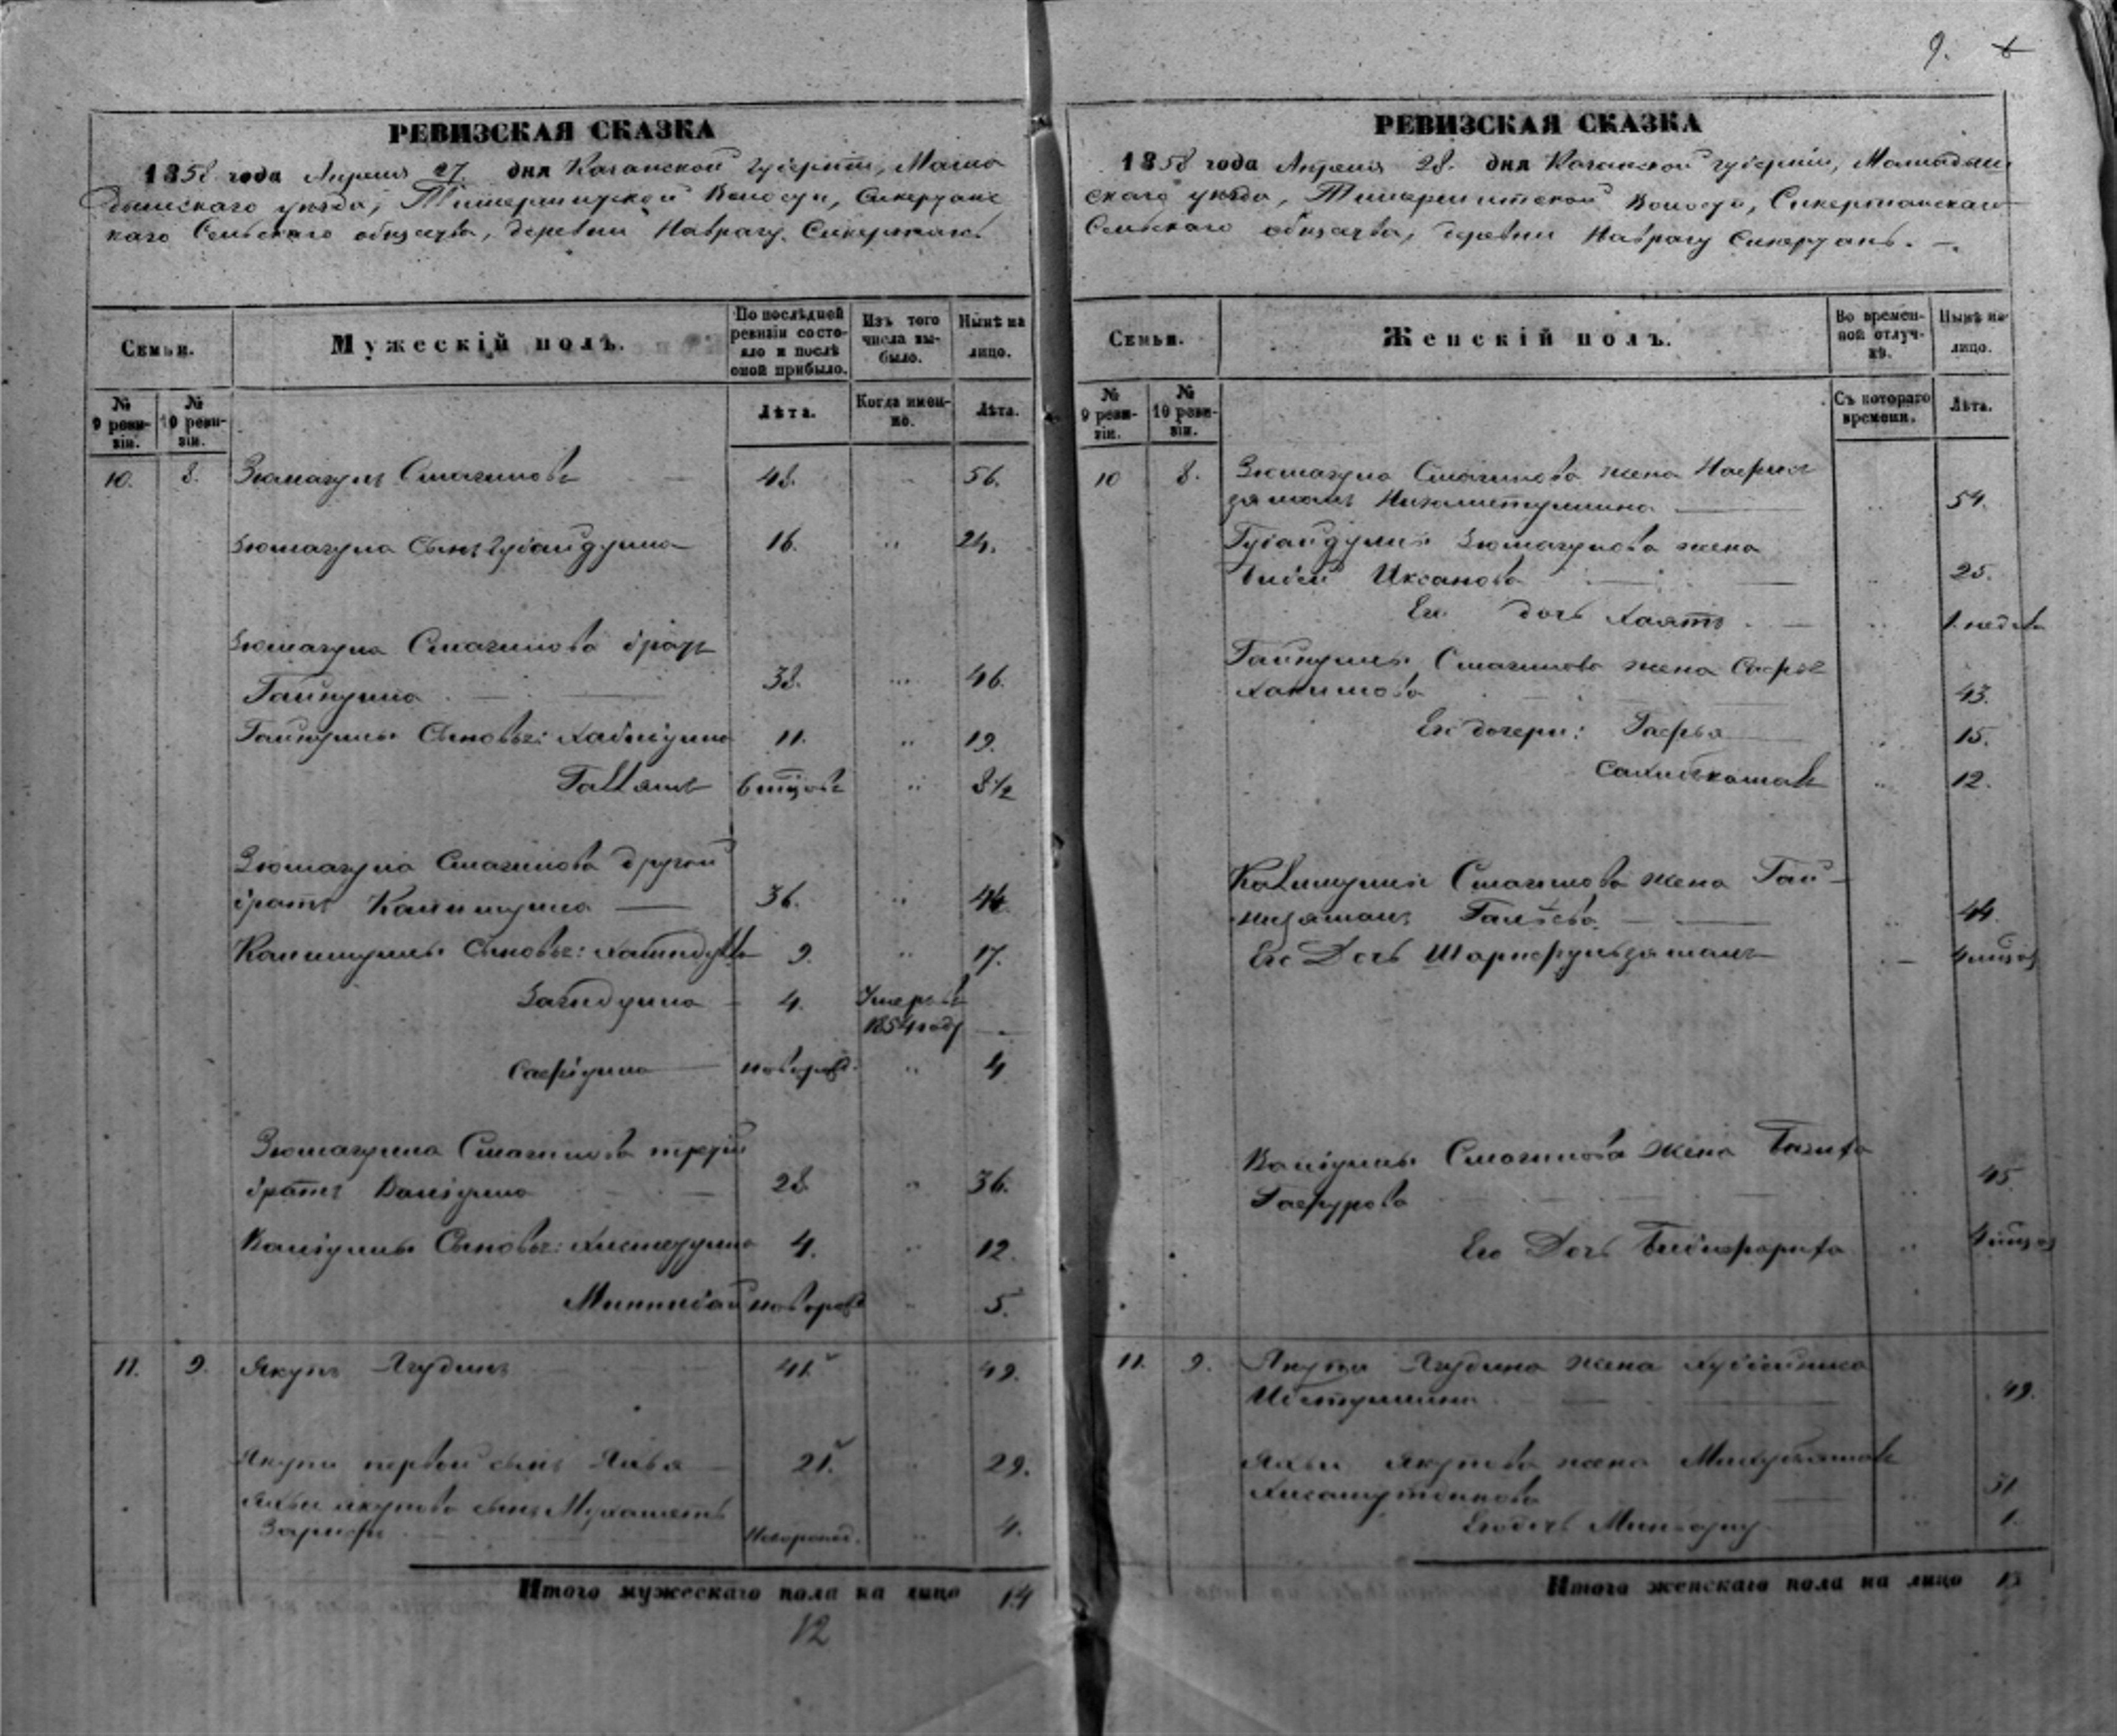 9.
РЕВИЗСКАЯ СКАЗКА
1858 года Апреля 27. дня Казанской Губерніи, Мама
дышскаго уѣзда, Волости, Сикертанс
каго Сельскаго общества, деревни Наврагу Сикертанъ
Семьи.
Мужескій полъ.
По послѣдней
ревизіи состо-
яло и послѣ
оной прибыло.
Изъ того
числа вы-
было.
Нынѣ на
лицо.
№
9 реви-
зіи.
№
10 реви-
зіи.
Лѣта.
Когда имен-
но.
Лѣта.
10. 8. Зюмагулъ Смагиловъ 48. 56.
Зюмагула Сынъ Губайдулла 16. 24.
Зюмагула Смагилова братъ
Гайнулла 38. 46.
Гайнуллы Сыновья: Хабидулла 11. 19.
6 мцовъ 8 1/2
Зюмагула Смагилова другой
братъ Калимулла 36. 44
Калимуллы Сыновья: 9. 17.
Загидулла 4. Умеръ въ
1854 году
Сафіулла новорож. 4
Зюмагула Смагилова третій
братъ Валіулла 28. 36.
Валіуллы Сыновья: 4. 12.
Миннибай новорож 5.
11. 9. Якупъ Ягудинъ 41. 49.
Якупа первой сынъ Яхья 21. 29.
Яхьи Якупова сынъ Мухаметъ
Зарифъ Новорожд. 4.
Итого мужескаго пола на лицо 14
12
РЕВИЗСКАЯ СКАЗКА
1858 года Апреля 28. дня Казанской губерніи, Мамадыш
скаго уѣзда, Волости, Сикертанскаго
Сельскаго общества, деревни Наврагу Сикертанъ.
Семьи.
Женскій полъ.
Во времен-
ной отлуч-
кѣ.
Нынѣ на-
лицо.
№
9 реви-
зіи.
№
10 реви-
зіи.
Съ котораго
времени.
Лѣта.
10 8. Зюмагула Смагилова жена
54.
Губайдуллы Зюмагулова жена
Бибей Иксанова 25.
Его дочь Хаятъ 1. недель
Гайнуллы Смагилова жена
Хакимова 43.
Его дочери: Гафья 15.
12.
Калимуллы Смагилова жена Гай-
низяманъ Галѣева 44.
Его Дочь 4 мцов
Валіуллы Смагилова жена
Гафурова 45.
Его Дочь Бибифарифа
11. 9. Якупа Ягудина жена
49.
Яхьи Якупова жена
Хисамутдинова 31
Его дочь 1.
Итого женскаго пола на лицо